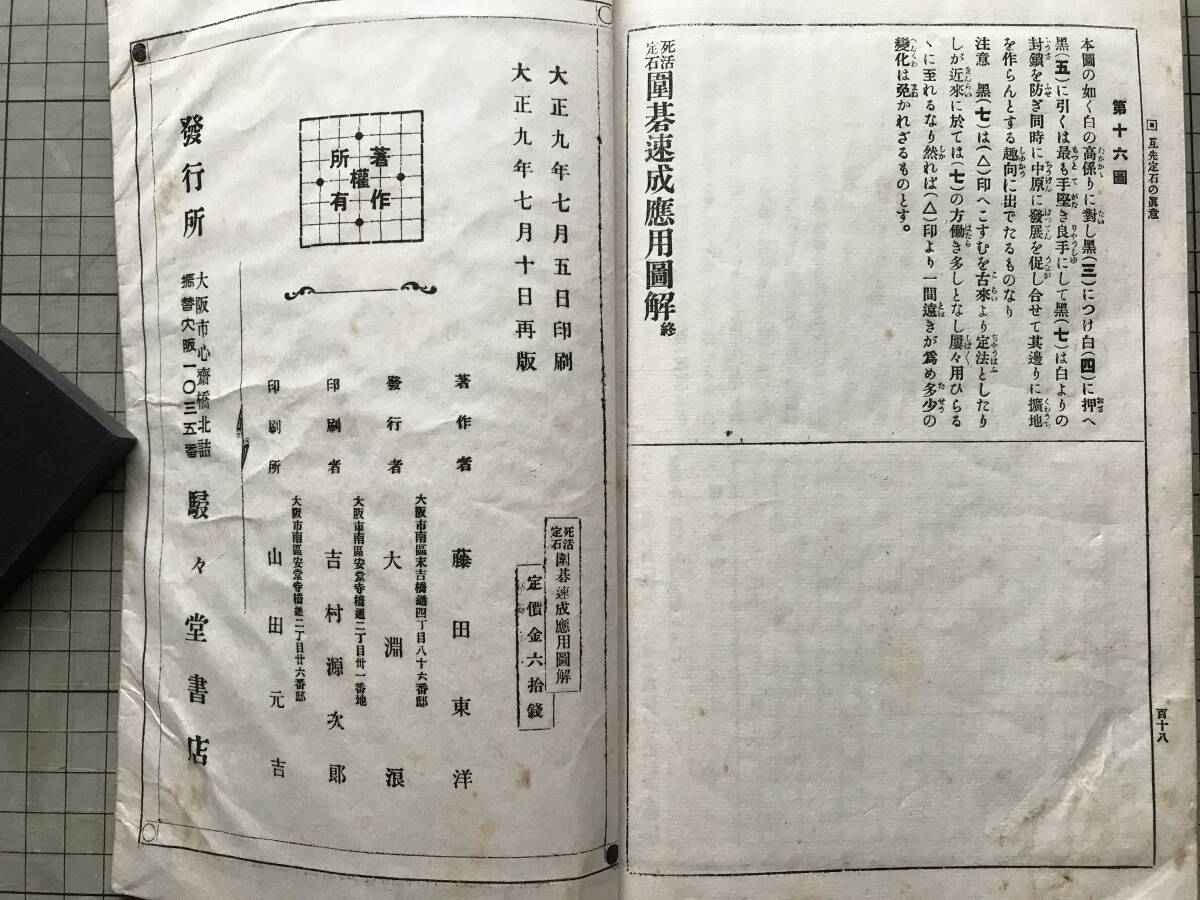 互先定石の眞意
第十六圖
本圖の如く白の高係りに對し黑(三)につけ白(四)に押へ
黑(五)に引くは最も手堅き良手にして黑(七)は白よりの
封鎖を防ぎ同時に中原に發展を促し合せて其邊りに擴地
を作らんとする趣向に出でたるものなり
注意 黑(七)は(△)印へこすむを古來より定法としたり
しが近來に於ては(七)の方働き多しとなし屢々用ひらる
ヽに至れるなり然れば(△)印より一間遠きが爲め多少の
變化は免かれざるものとす。
死活定石圍碁速成應用圖解終
百十八
大正九年七月五日印刷
大正九年七月十日再版
著作權所有
死活定石圍碁速成應用圖解
定價金六拾錢
著作者 藤田東洋
大阪市南區末吉橋通四丁目八十六番邸
發行者 大淵浪
大阪市南區安堂寺橋通二丁目卅一番地
印刷者 吉村源次郎
大阪市南區安堂寺橋通二丁目廿六番邸
印刷所 山田元吉
發行所 大阪市心齋橋北詰 振替大阪一〇三五番 駸々堂書店